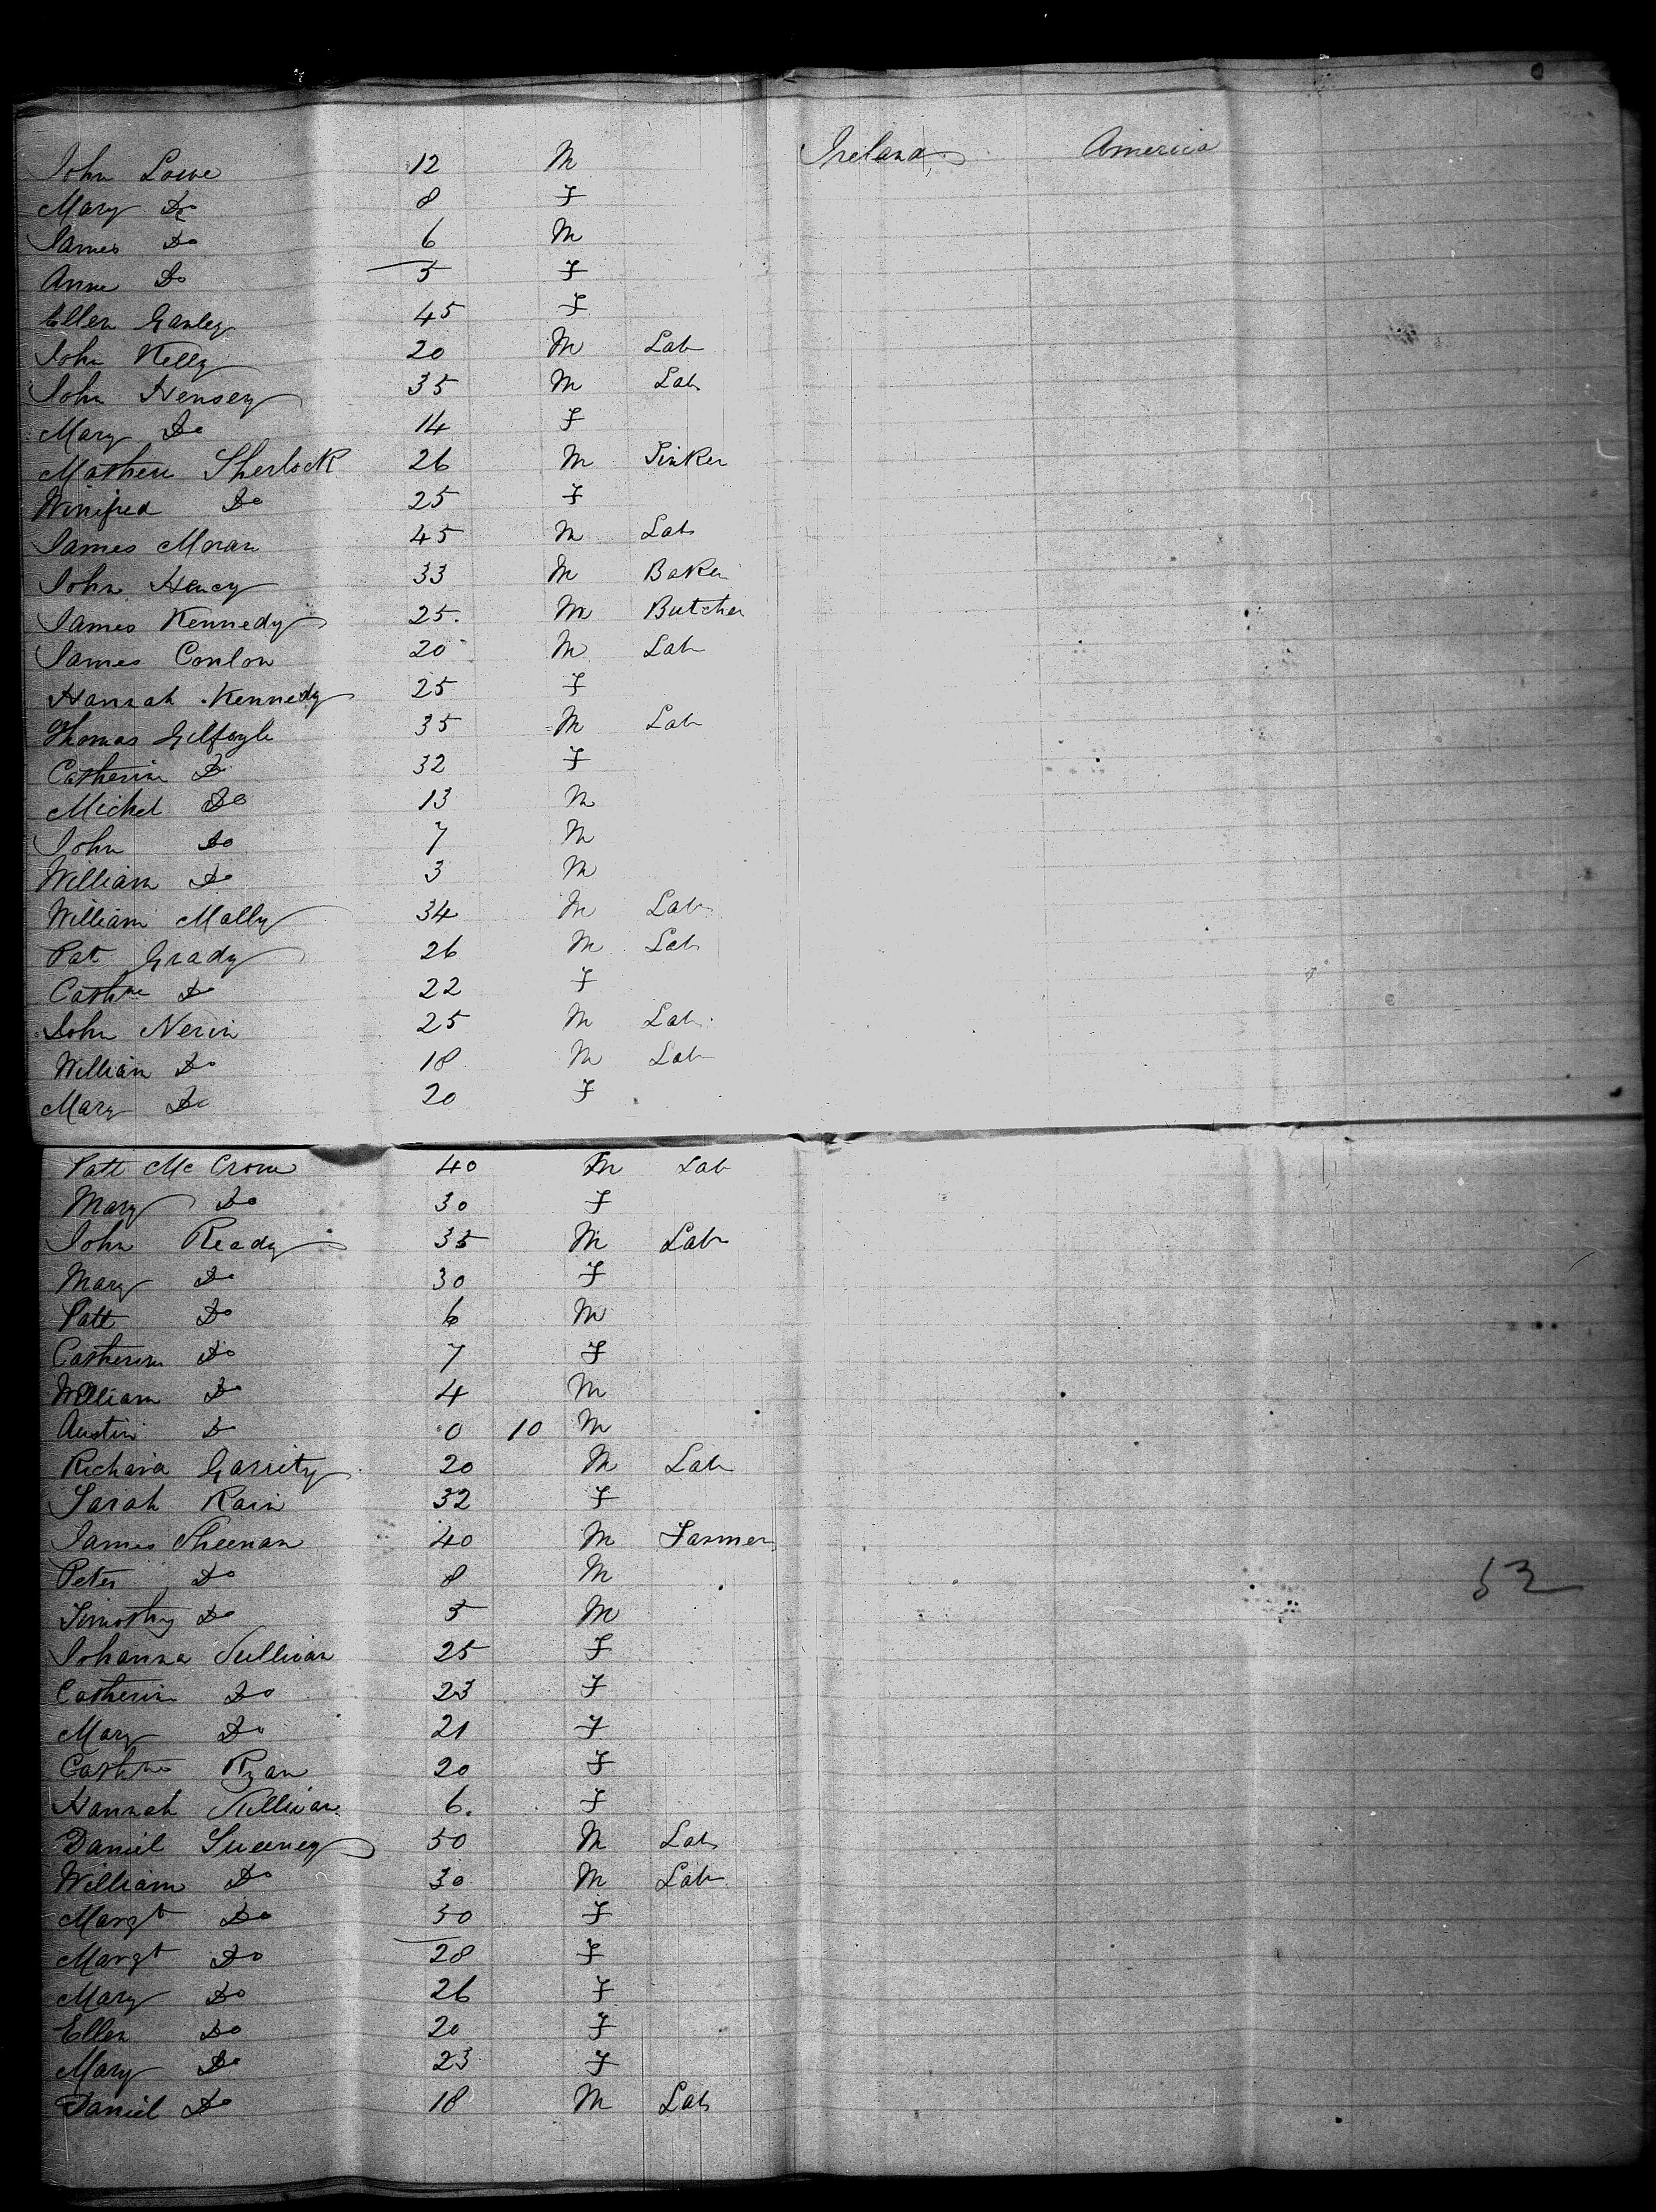 John Lowe 12 M Ireland America
Mary Do 8 F
James Do 6 M
Anne Do 5 F
Ellen Ganley 45 F
John Kelly 20 M Lab
John Hensey 35 M Lab
Mary Do 14 F
Mathew Sherlock 26 M Tinker
Winifred Do 25 F
James Moran 45 M Lab
John Heney 33 M Baker
James Kennedy 25. M Butcher
James Conlon 20 M Lab
Hannah Kennedy 25 F
Thomas Gilfoyle 35 M Lab
Catherin Do 32 F
Michel Do 13 M
John Do 7 M
William Do 3 M
William Mally 34 M Lab
Pat Grady 26 M Lab
Cathne Do 22 F
John Nevin 25 M Lab
William Do 18 M Lab
Mary Do 20 F
Patt Mc Crow 40 M Lab
Mary Do 30 F
John Ready 35 M Lab
Mary Do 30 F
Patt Do 6 M
Catherin Do 7 F
William Do 4 M
Austin Do 0 10 M
Richard Garrity 20 M Lab
Sarah Kain 32 F
James Sheenan 40 M Farmer
Peter Do 8 M 52
Timothy Do 5 M
Johanna Sullivan 25 F
Catherin Do 23 F
Mary Do 21 F
Cathne Ryan 20 F
Hannah Sullivan 6. F
Daniel Sweeney 50 M Lab
William Do 30 M Lab
Margt Do 30 F
Margt Do 28 F
Mary Do 26 F
Ellen Do 20 F
Mary Do 23 F
Daniel Do 18 M Lab